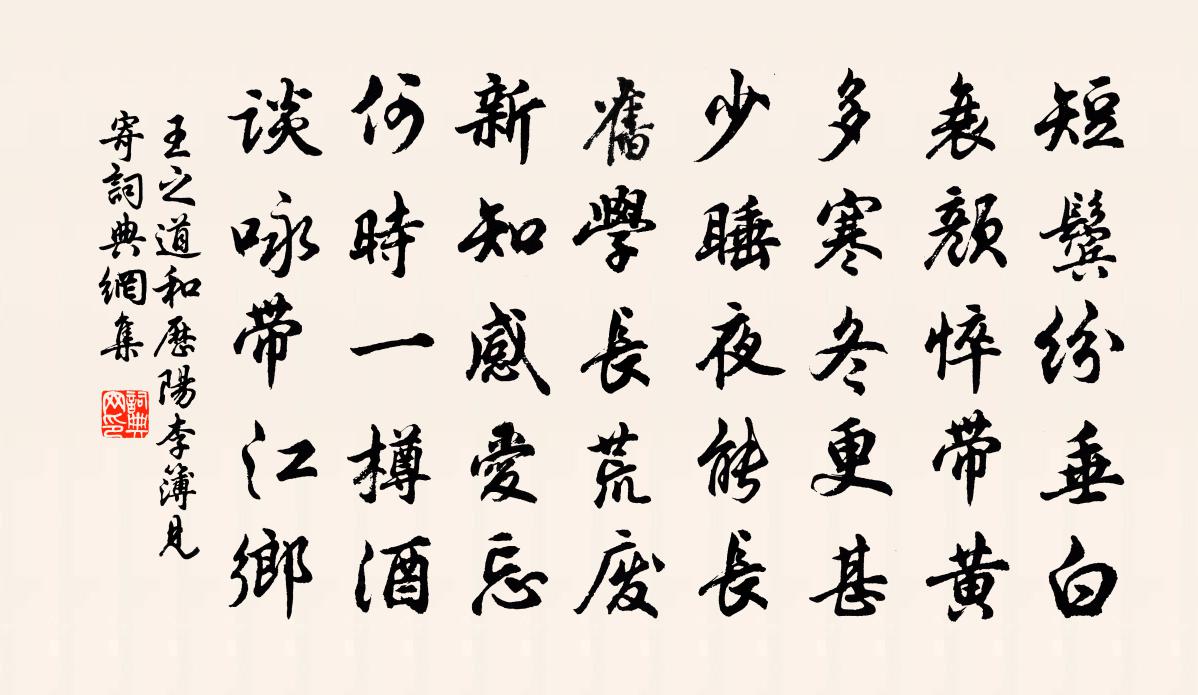 短鬢紛垂白
衰顏悴帶黃
多寒冬更甚
少睡夜能長
舊學長荒廢
新知感愛忘
何時一樽酒
談咏帶江鄉
王之道和歷陽李簿見
寄詞典網集
詞典
网印